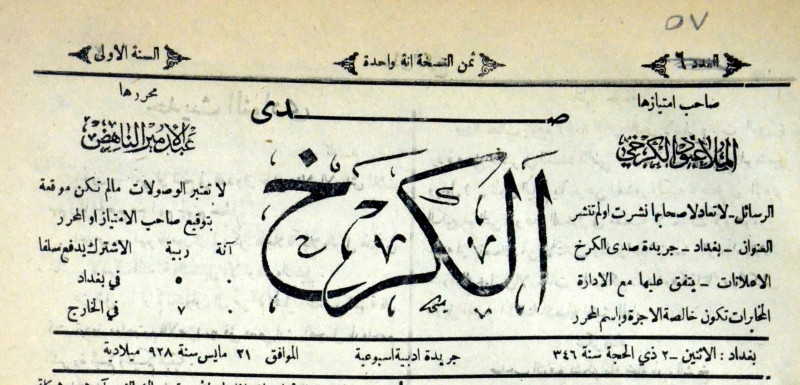 ٥٧
العدد ٦
ثمن النسخة انة واحدة
السنة الاولى
صاحب امتيازها
الملا عبود الكرخي
الرسائل ـ لا تعاد لاصحابها نشرت او لم تنشر
العنوان ـ بغداد ـ جريدة صدى الكرخ
الاعلانات ـ يتفق عليها مع الادارة
المخابرات تكون خالصة الاجرة وباسم المحرر
صدى
الكرخ
محررها
عبد الامير الناهض
لا تعتبر الوصولات مالم تكن موقعة
بتوقيع صاحب الامتياز او المحرر
آنة ربية الاشتراك يدفع سلفا
٠ ٥ في بغداد
٠ ٧ في الخارج
بغداد : الاثنين ـ ٢ ذي الحجة سنة ٣٤٦
جريدة ادبية اسبوعية
الموافق ٢١ مايس سنة ٩٢٨ ميلادية